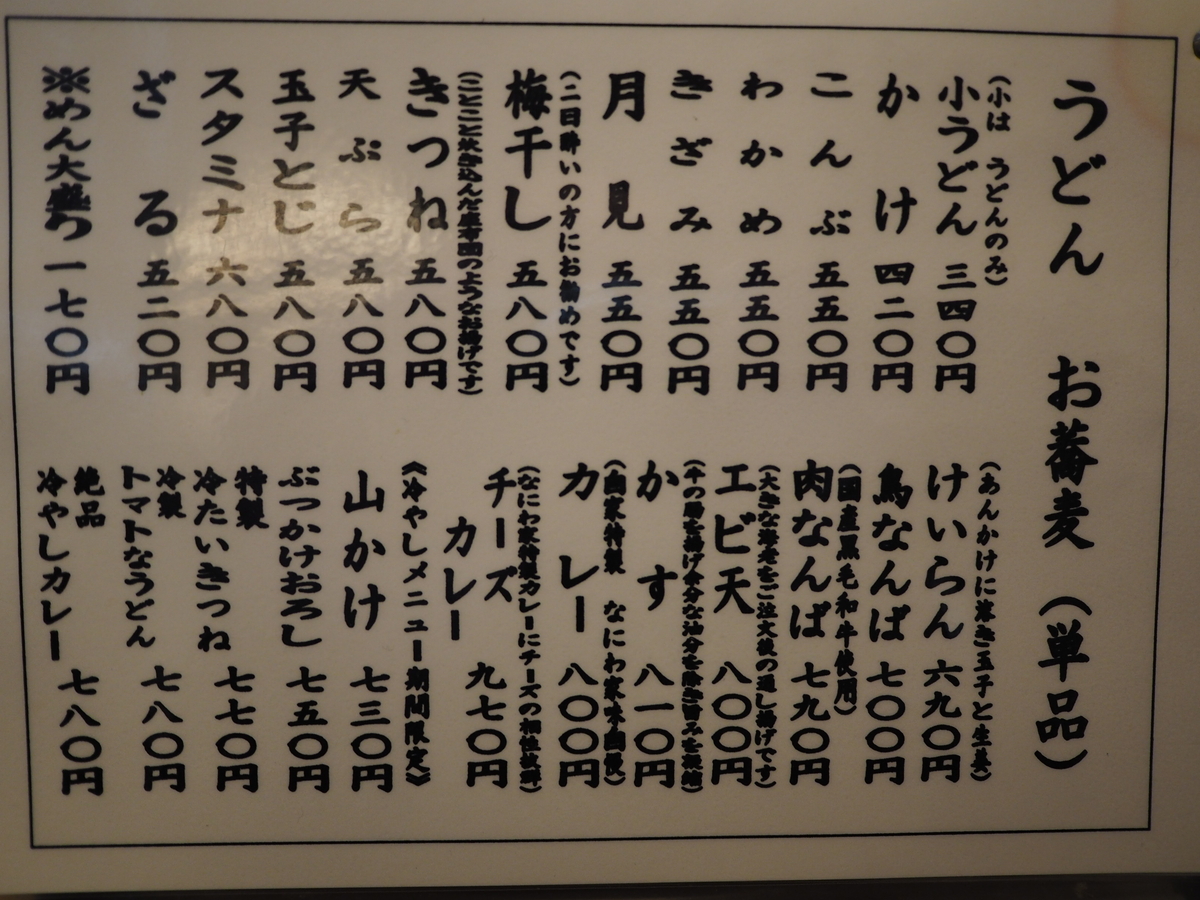 うどん お蕎麦（単品）
（小は うどんのみ）
小うどん 三四〇円
かけ 四二〇円
こんぶ 五五〇円
わかめ 五五〇円
きざみ 五五〇円
月見 五五〇円
（二日酔いの方にお勧めです）
梅干し 五八〇円
（ことこと炊き込んだ座布団のようなお揚げです）
きつね 五八〇円
天ぷら 五八〇円
玉子とじ 五八〇円
スタミナ 六八〇円
ざる 五二〇円
※めん大盛り 一七〇円
（あんかけに溶き玉子と生姜）
けいらん 六九〇円
鳥なんば 七〇〇円
（国産黒毛和牛使用）
肉なんば 七九〇円
（大きな海老をご注文後の通し揚げです）
エビ天 八〇〇円
（牛の腸を揚げ余分な油分を除き旨みを凝縮）
かす 八一〇円
（自家特製 なにわ家味自慢）
カレー 八〇〇円
（なにわ家特製カレーにチーズの相性抜群）
チーズ
カレー 九七〇円
《冷やしメニュー期間限定》
山かけ 七三〇円
ぶつかけおろし 七五〇円
特製
冷たいきつね 七七〇円
冷製
トマトなうどん 七八〇円
絶品
冷やしカレー 七八〇円